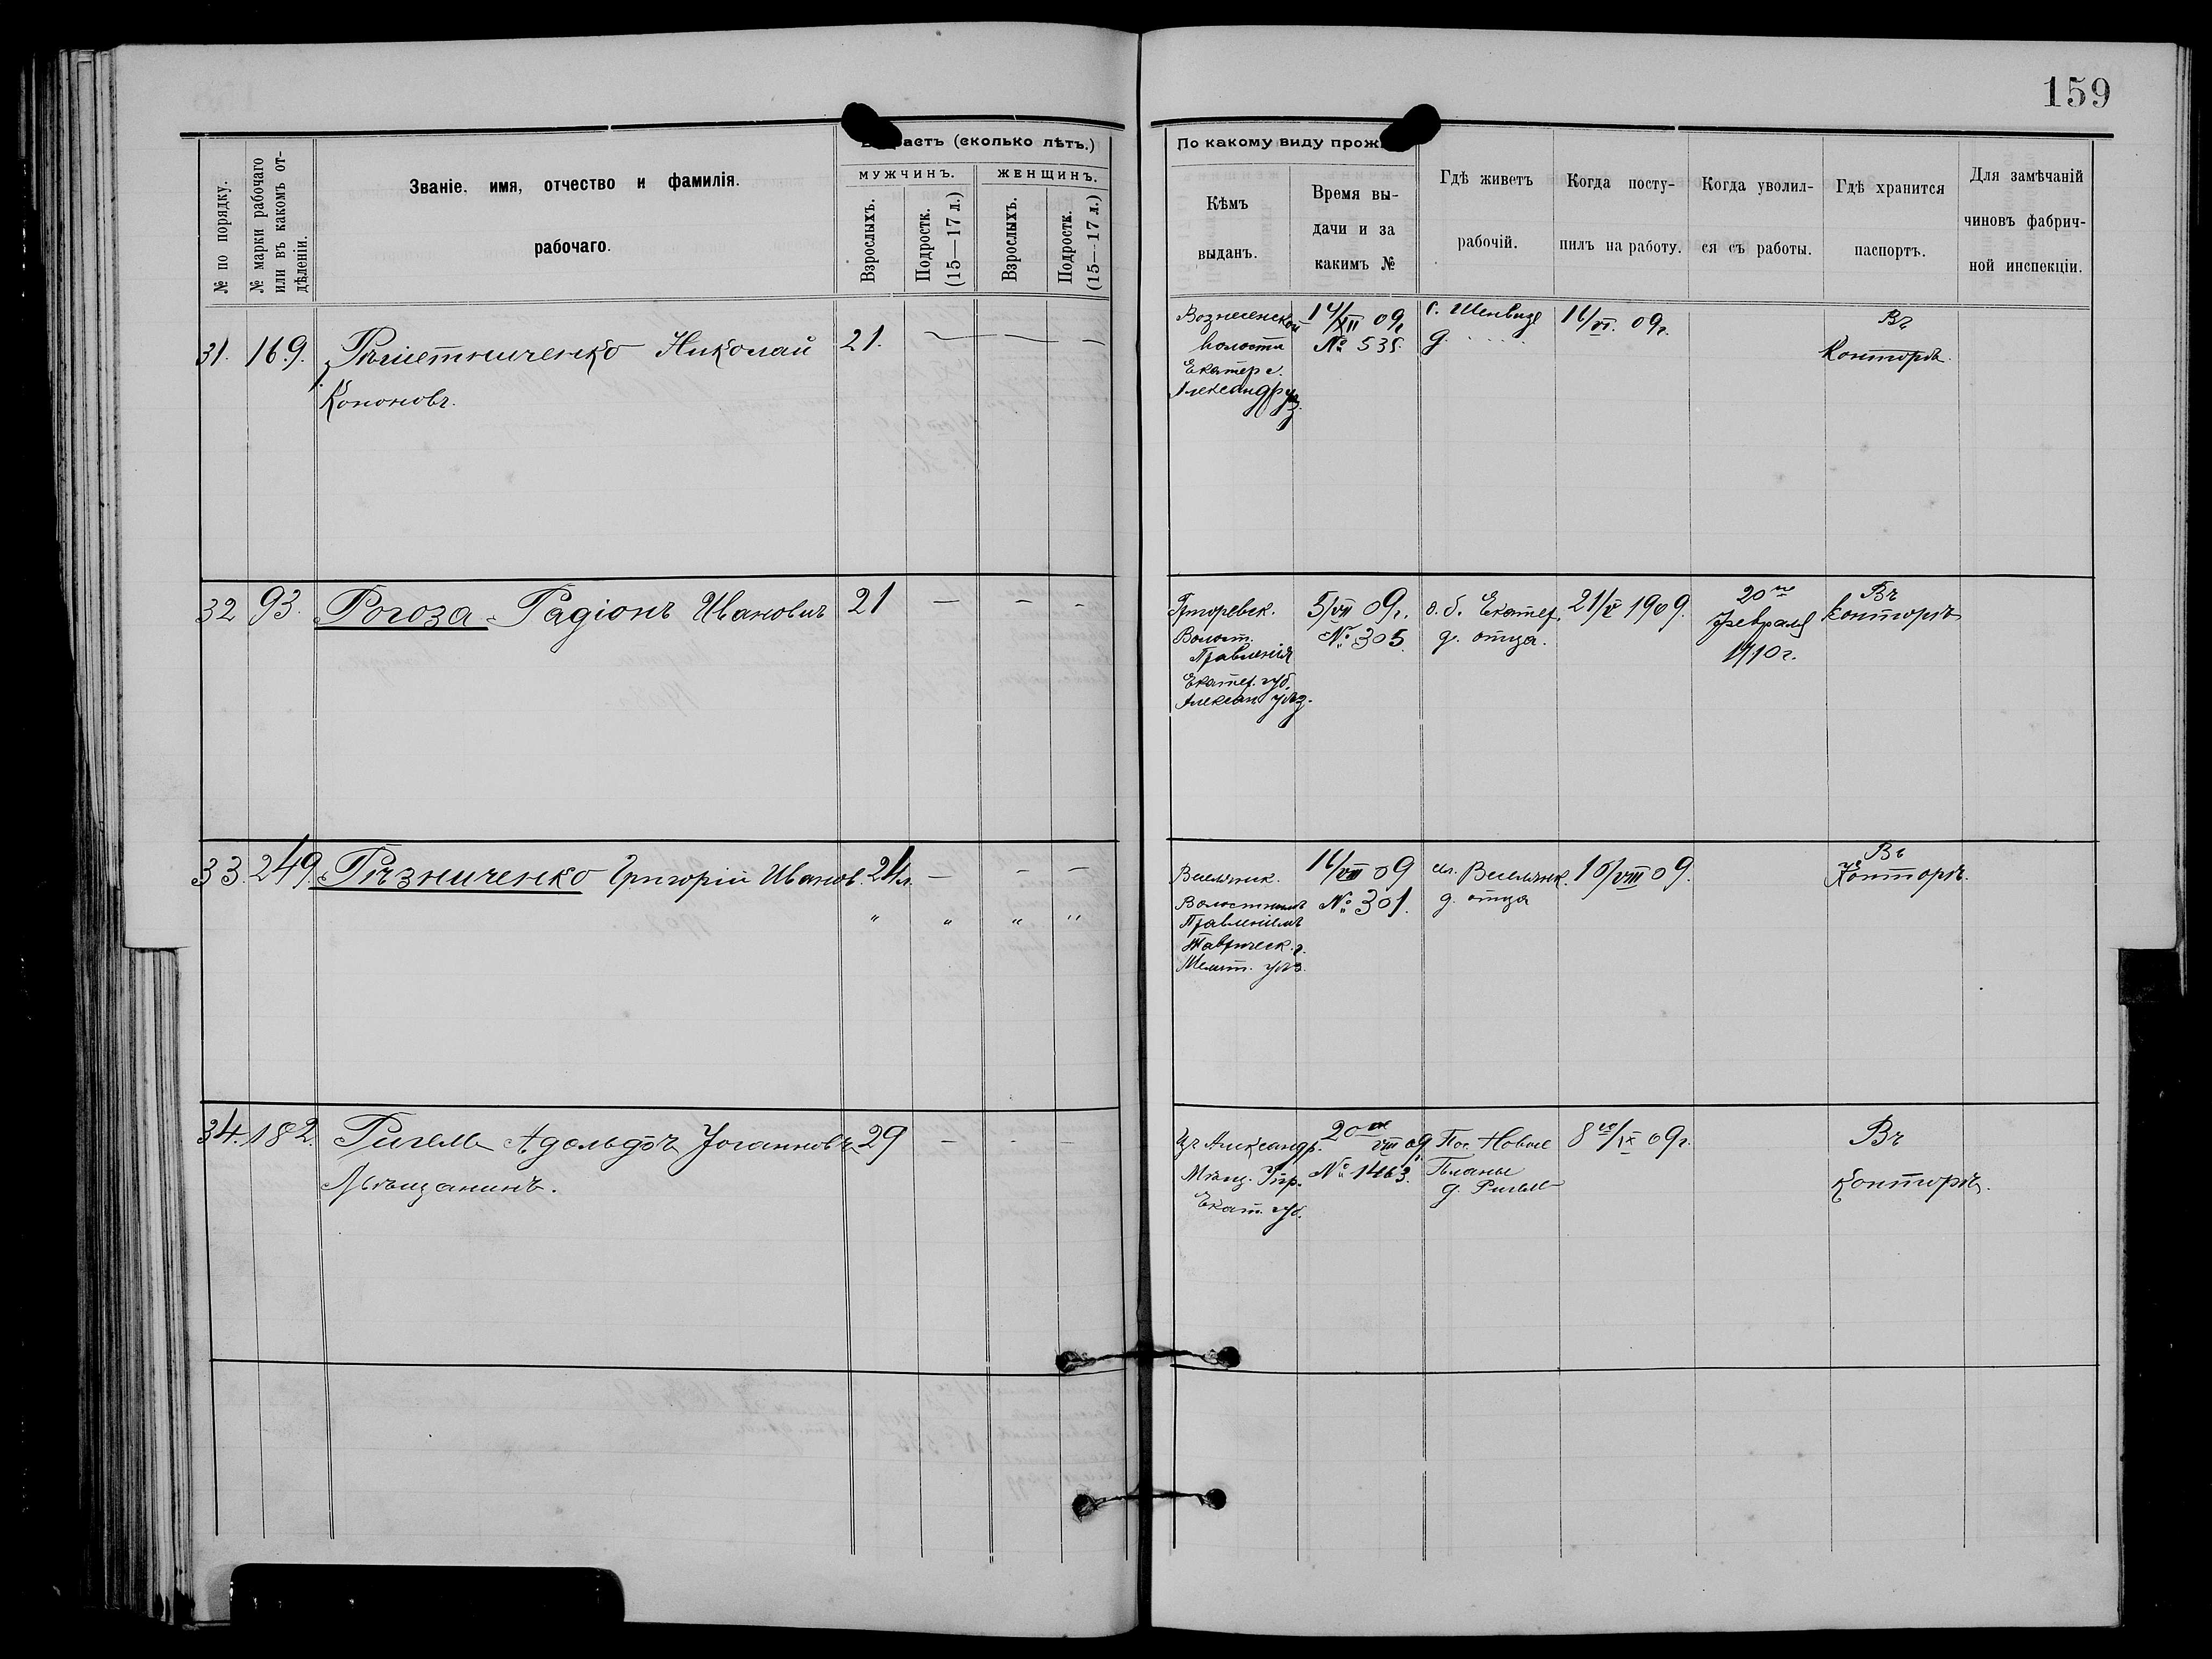 159
Возрастъ (сколько лѣтъ.)
По какому виду прож
№ по порядку.
№ марки рабочаго
или въ какомъ от-
дѣленіи.
Званіе, имя, отчество и фамилія
рабочаго.
МУЖЧИНЪ.
ЖЕНЩИНЪ.
Взрослыхъ.
Подростк.
(15—17 л.)
Взрослыхъ.
Подростк.
(15—17 л.)
Кѣмъ
выданъ.
Время вы-
дачи и за
какимъ №
Гдѣ живетъ
рабочій.
Когда посту-
пилъ на работу.
Когда уволил-
ся съ работы.
Гдѣ хранится
паспортъ.
Для замѣчаній
чиновъ фабрич-
ной инспекціи.
31. 169. Рѣшетниченко Николай 21. — — —
Кононовъ.
Вознесенской
волости
Екатер г.
Александр уѣз.
14/XII 09г
№ 535.
с. Шенвизе
д. . . . .
16/VI. 09г.
Въ
Конторѣ.
32 93. Рогоза Радіонъ Ивановичъ 21 — — -
Волост.
Правленія
Екатер. губ.
Алексан уѣзд.
5/VII 09г.
№ 305.
Екатер.
д. отца.
21/V 1909.
20го
февраля
1910г.
Въ
Конторѣ
33. 249. Рѣзниченко Григорій Иванов. 21 л. — - —
" " " "
Веселянск.
Волостнымъ
Правленіемъ
Таврическ. г.
Мелит. уѣз.
16/VII 09
№ 301.
Веселянк.
д. отца
10/VIII 09.
Въ
Конторѣ.
34. 182. Ригель Адольфъ Іоганновъ 29 — - —
Мѣщанинъ.
Александр.
Мѣщ. Упр.
Екат. губ.
20го VIII 09
№ 1463.
Пос. Новые
Планы
д. Ригель
8го/IX 09г.
Въ
Конторѣ.